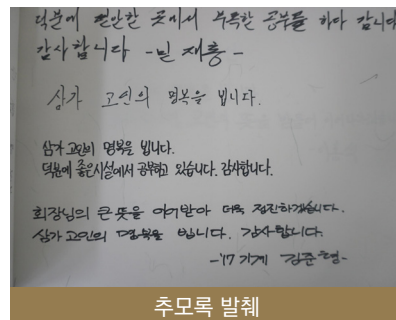 덕분에 편안한 곳에서 부족한 공부를 하다 갑니다
감사합니다 -민재홍-
삼가 고인의 명복을 빕니다.
삼가 고인의 명복을 빕니다.
덕분에 좋은시설에서 공부하고 있습니다. 감사합니다.
회장님의 큰 뜻을 이어받아 더욱 정진하겠습니다.
삼가 고인의 명복을 빕니다. 감사합니다.
-'17 기계 김준형-
추모록 발췌